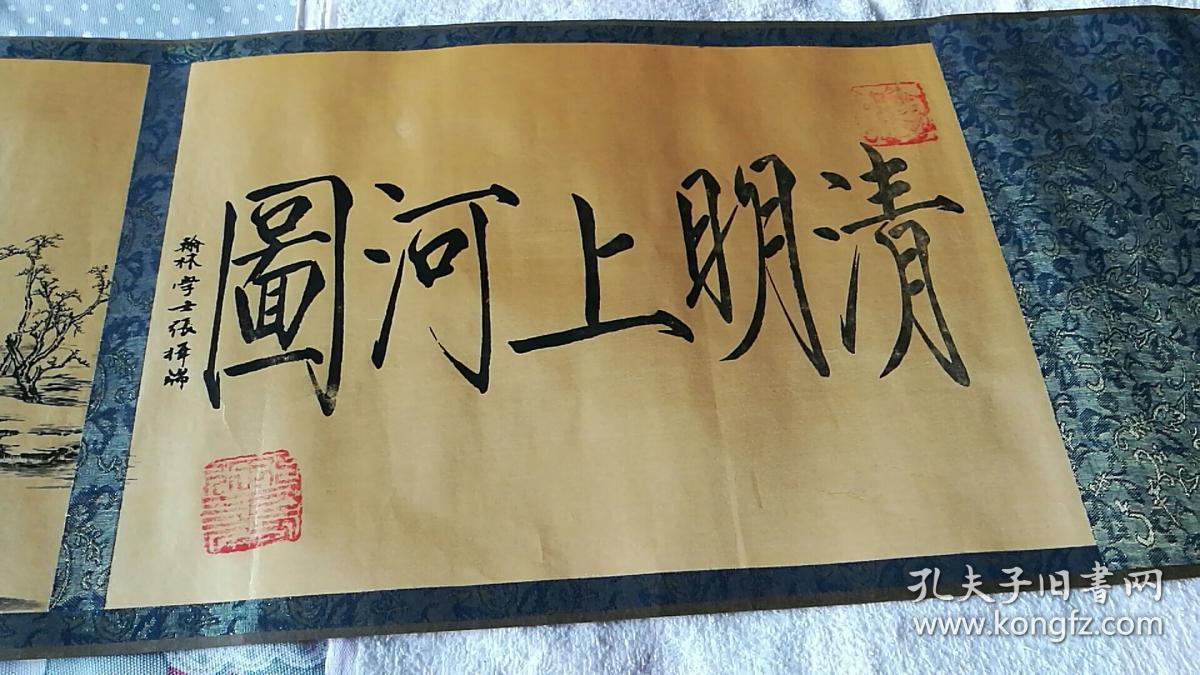 清明上河圖
翰林學士張擇端
孔夫子旧書网
www.kongfz.com